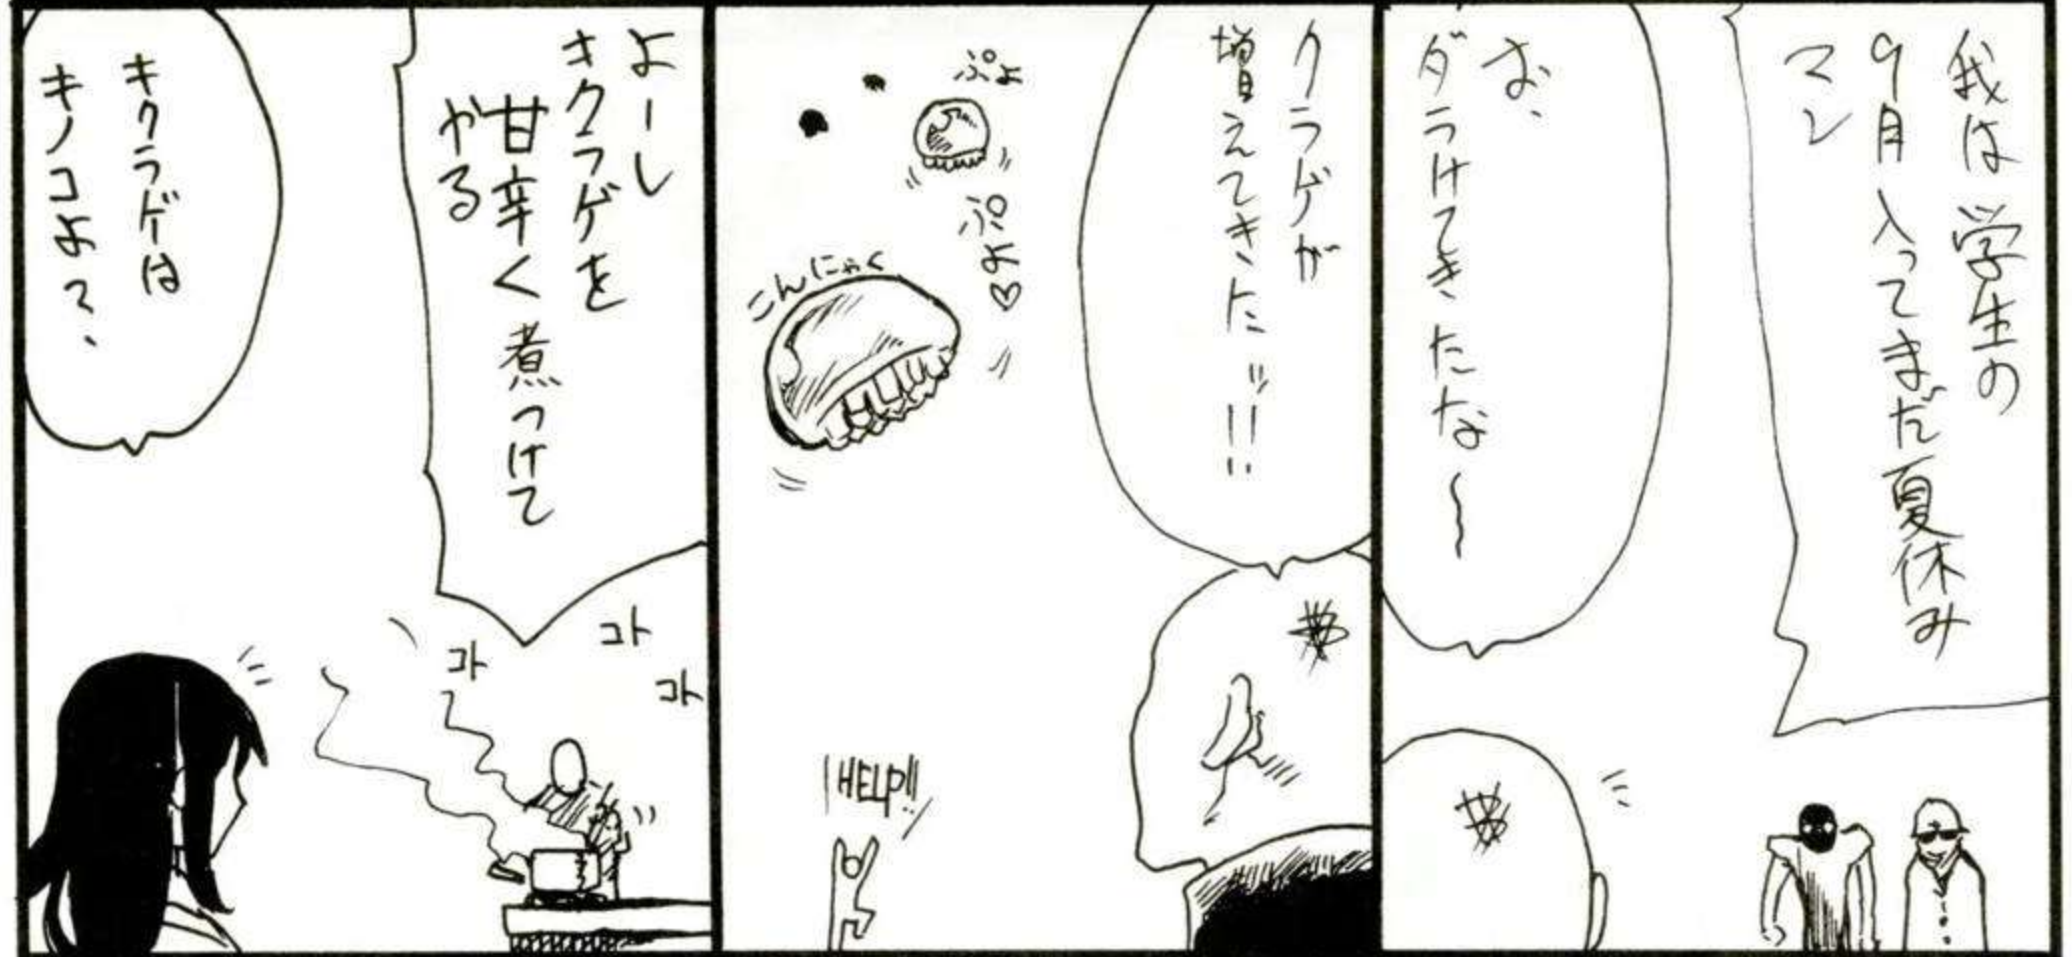 我は学生の
9月入ってまだ夏休み
マン
な、
ダラけてきたな〜
クラゲが
増えてきたッ!!
ぷよ
ぷよ♡
こんにゃく
HELP!!
よーし
キクラゲを
甘辛く煮つけて
やる
コト
コト
コト
キクラゲは
キノコよ?、